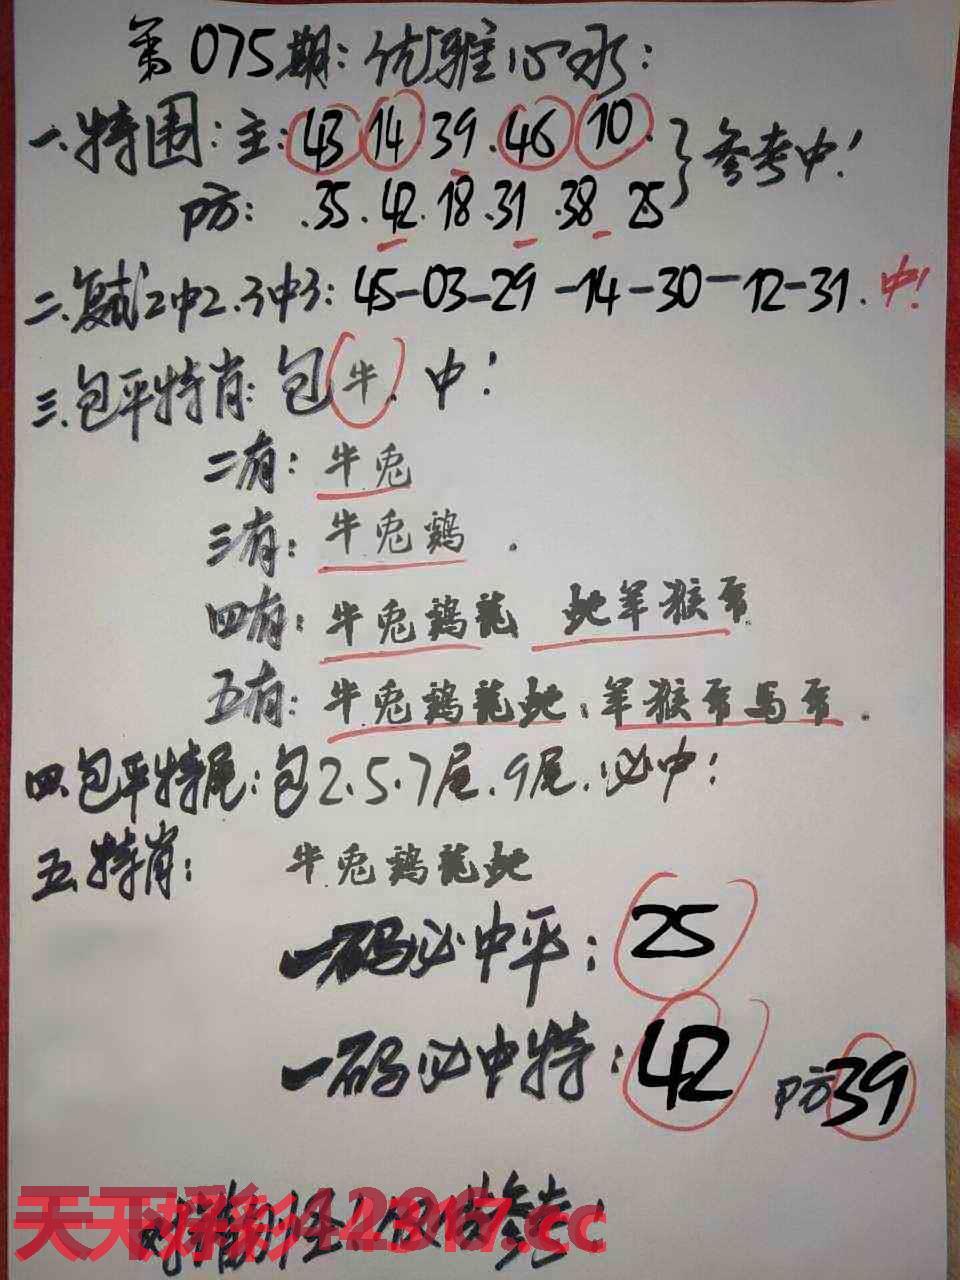 第075期:优雅心水:
一.特围:主:43 14.39.46 10.
防: .35.42.18.31.38 25
参考中!
二.复试2中2.3中3:45-03-29-14-30-12-31.中!
三.包平特肖:包牛.中!
二有:牛兔
三有:牛兔鷄.
四有:牛兔鷄龍 蛇羊猴
五有:牛兔鷄龍蛇:羊猴 馬
四.包平特尾:包2.5.7尾.9尾.必中!
五.特肖: 牛兔鷄龍蛇
一码必中平:25
一码必中特:42 防39
天下彩 .cc
参考!